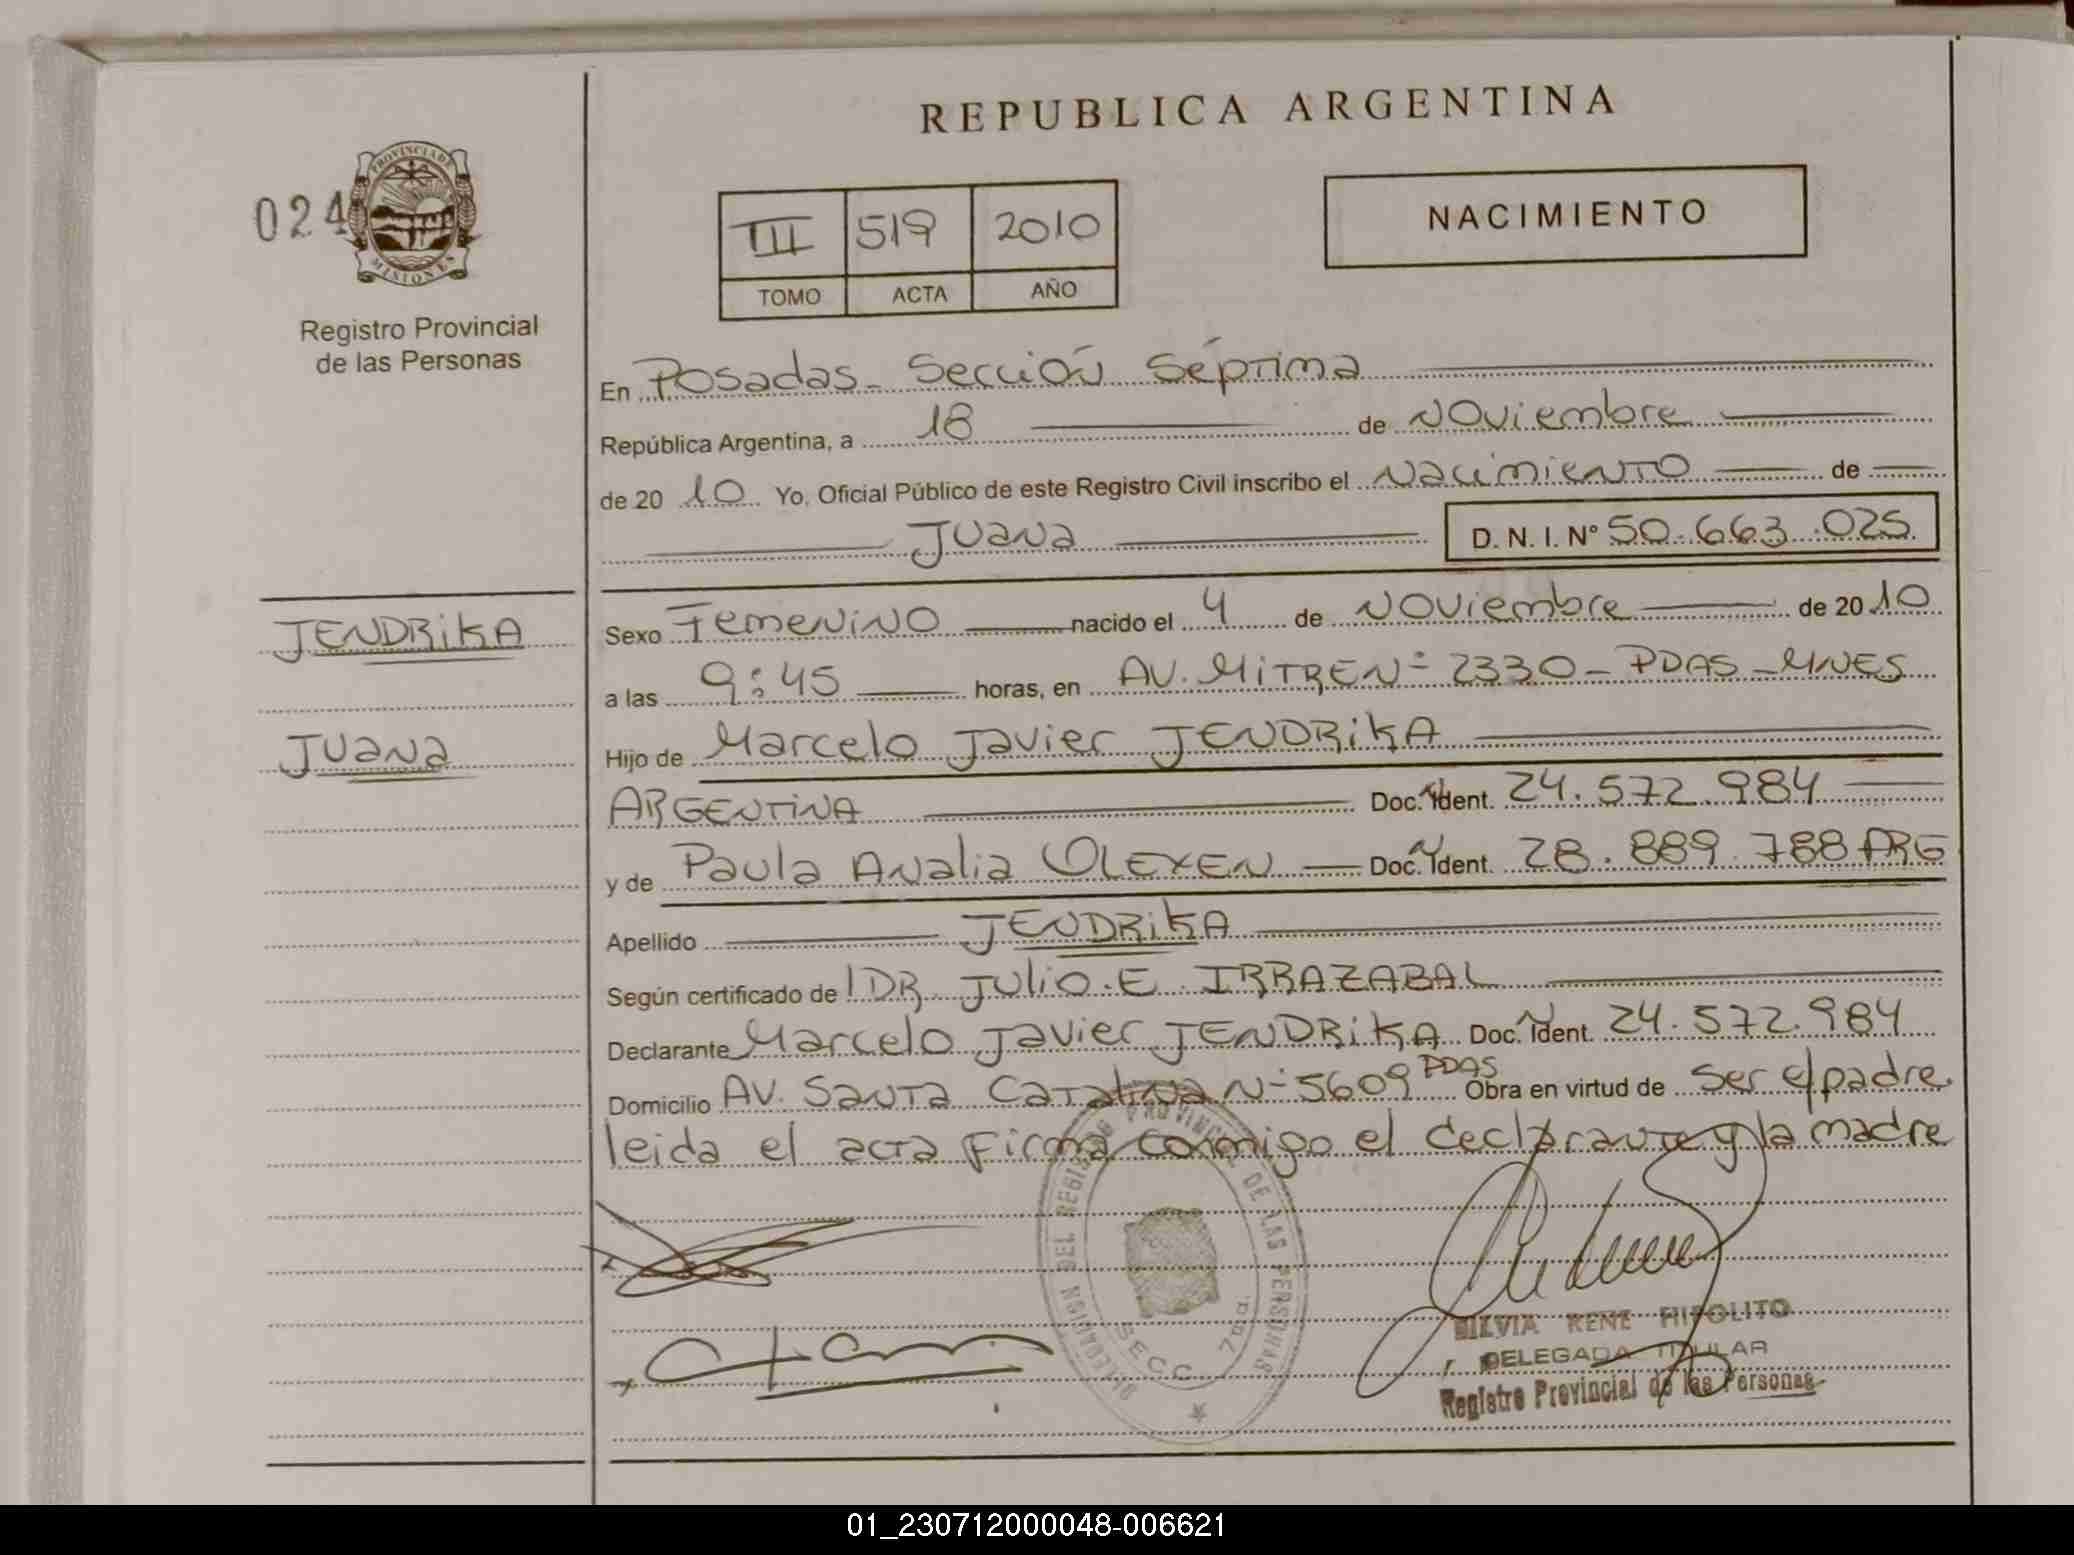 REPUBLICA ARGENTINA
024
PROVINCIA DE
MISIONES
Registro Provincial
de las Personas
III 519 2010
TOMO ACTA AÑO
NACIMIENTO
En Posadas - Sección Séptima
República Argentina, a 18 de Noviembre
de 20 10 Yo, Oficial Público de este Registro Civil inscribo el Nacimiento de
Juana D. N. I. Nº 50.663.025
JENDRIKA
Juana
Sexo Femenino nacido el 4 de Noviembre de 20 10
a las 9:45 horas, en AV. MITRE Nº 2330 - PDAS - MNES
Hijo de Marcelo Javier JENDRIKA
ARGENTINA Doc. Ident. 24.572.984
y de Paula Analia OLEXEN Doc. Ident. 28.889.788 ARG
Apellido JENDRIKA
Según certificado de DR. Julio. E. IRRAZABAL
Declarante Marcelo Javier JENDRIKA Doc. Ident. 24.572.984
Domicilio AV. Santa Catalina Nº 5609 PDAS Obra en virtud de ser el padre.
leida el acta firma conmigo el declarante y la madre
DELEGACION DEL REGISTRO PROVINCIAL DE LAS PERSONAS
SECC. 7a.
SILVIA RENE HIPOLITO
DELEGADA TITULAR
Registro Provincial de las Personas
01_230712000048-006621